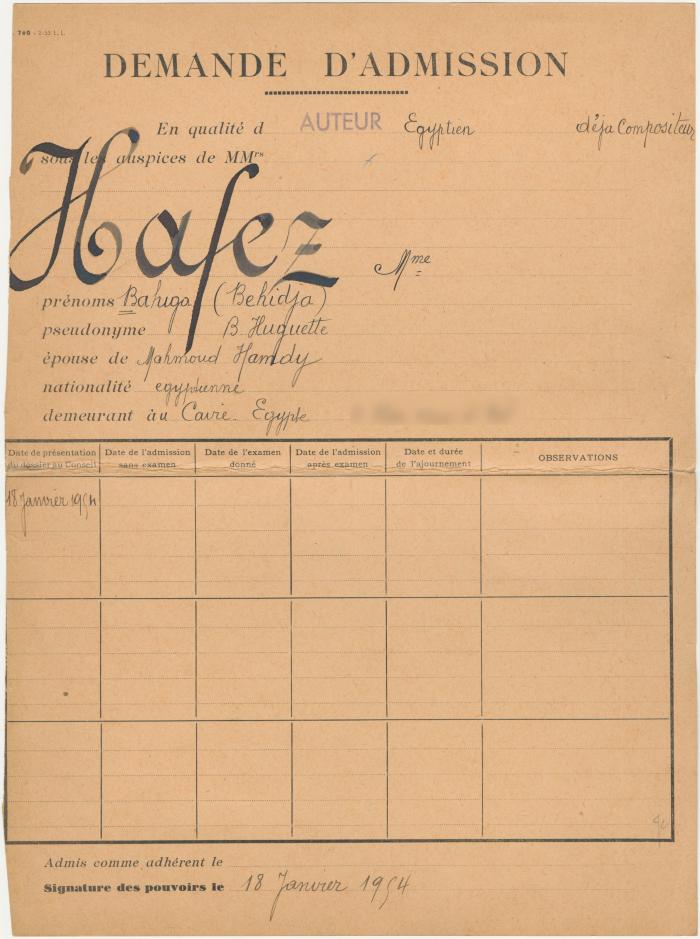 740 - 2-53 L. I.
DEMANDE D'ADMISSION
En qualité d AUTEUR Egyptien déja Compositeur
sous les auspices de MMrs
Hafez Mme
prénoms Bahiga (Behidja)
pseudonyme B. Huguette
épouse de Mahmoud Hamdy
nationalité egyptienne
demeurant à u Caire. Egypte
Date de présentation du dossier au Conseil
Date de l'admission sans examen
Date de l'examen donné
Date de l'admission après examen
Date et durée de l'ajournement
OBSERVATIONS
18 Janvier 1954
Admis comme adhérent le
Signature des pouvoirs le 18 Janvier 1954